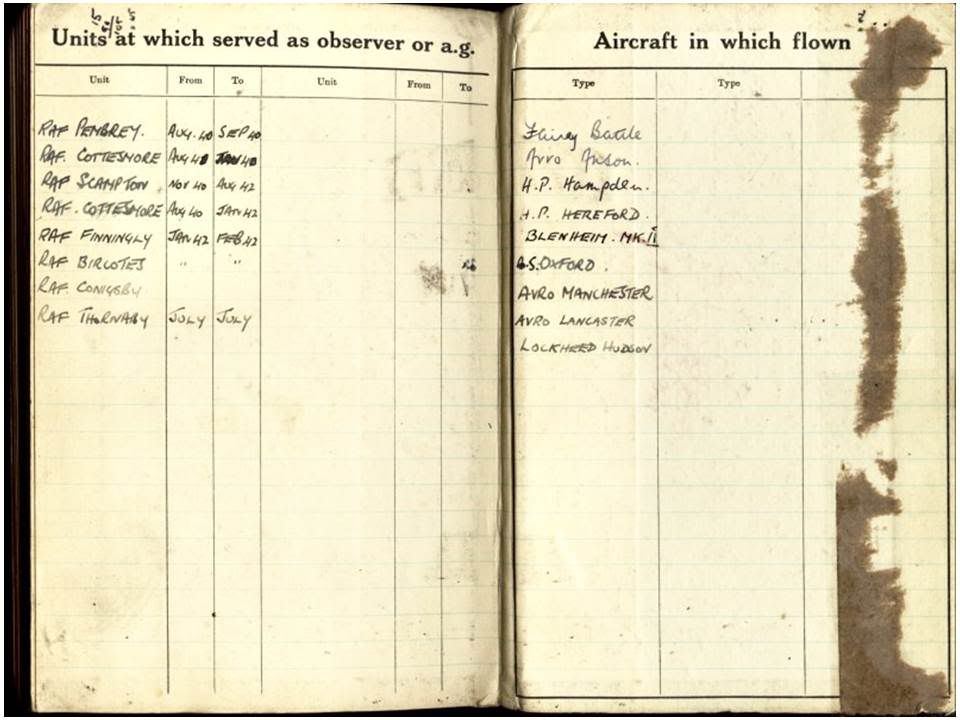 Units at which served as observer or a.g.
Unit From To Unit From To
RAF PEMBREY. AUG. 40 SEP 40
RAF. COTTESMORE AUG 40 JAN 40
RAF SCAMPTON NOV 40 AUG 42
RAF. COTTESMORE AUG 40 JAN 42
RAF FINNINGLY JAN 42 FEB 42
RAF BIRCOTES " "
RAF. CONIGSBY
RAF THORNABY JULY JULY
Aircraft in which flown
Type Type
Fairey Battle
Avro Anson.
H.P. Hampden.
H.P. HEREFORD.
BLENHEIM. MK.II
A.S. OXFORD.
AVRO MANCHESTER
AVRO LANCASTER
LOCKHEED HUDSON